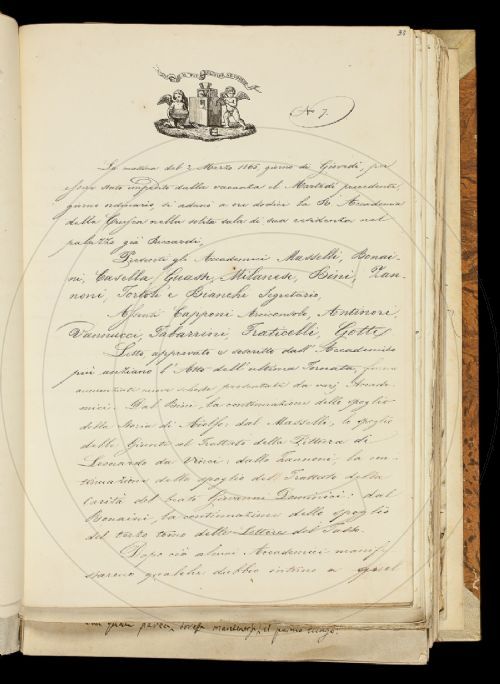 32
N 7.
La mattina del 2 Marzo 1865 giorno di Giovedì, per
essere stato impedito dalla vacanza il Martedì precedente
giorno ordinario, si adunò a ore dodici la R. Accademia
della Crusca nella solita sala di sua residenza nel
palazzo già Riccardi,
Presenti gli Accademici Masselli, Bonai-
ni, Casella, Guasti, Milanesi, Bini, Zan-
noni, Tortoli e Bianchi Segretario,
Assenti Capponi Arciconsolo, Antinori,
Vannucci, Tabarrini, Fraticelli, Gotti,
Letto approvato e descritto dall'Accademico
più anziano l'Atto dell'ultima Tornata, furon
nuove schede presentate da varj Accade-
mici. Dal Bini, la continuazione dello spoglio
della Storia di Aiolfo: dal Masselli, lo spoglio
delle Giunte al Trattato della Pittura di
Leonardo da Vinci: dallo Zannoni, la con-
tinuazione dello spoglio del Trattato della
Carità del beato Giovanni Dominici: dal
Bonaini, la continuazione dello spoglio
del terzo tomo delle Lettere del Tasso.
Dopo ciò alcuni Accademici manife-
starono qualche dubbio intorno a quel